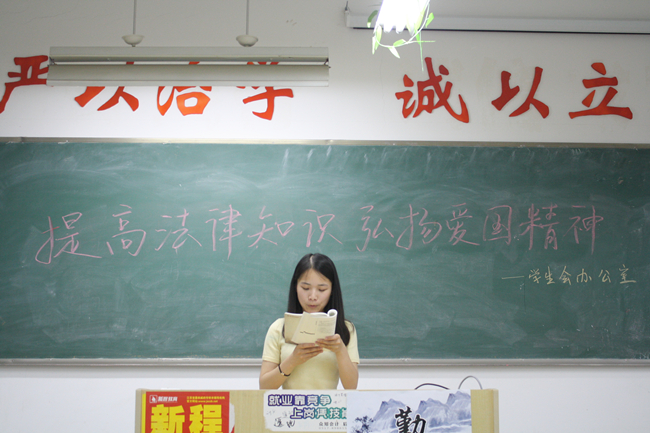 严以治学 诚以立
提高法律知识 弘扬爱国精神
—学生会办公室
就业靠竞争
上岗凭技
新程
勤